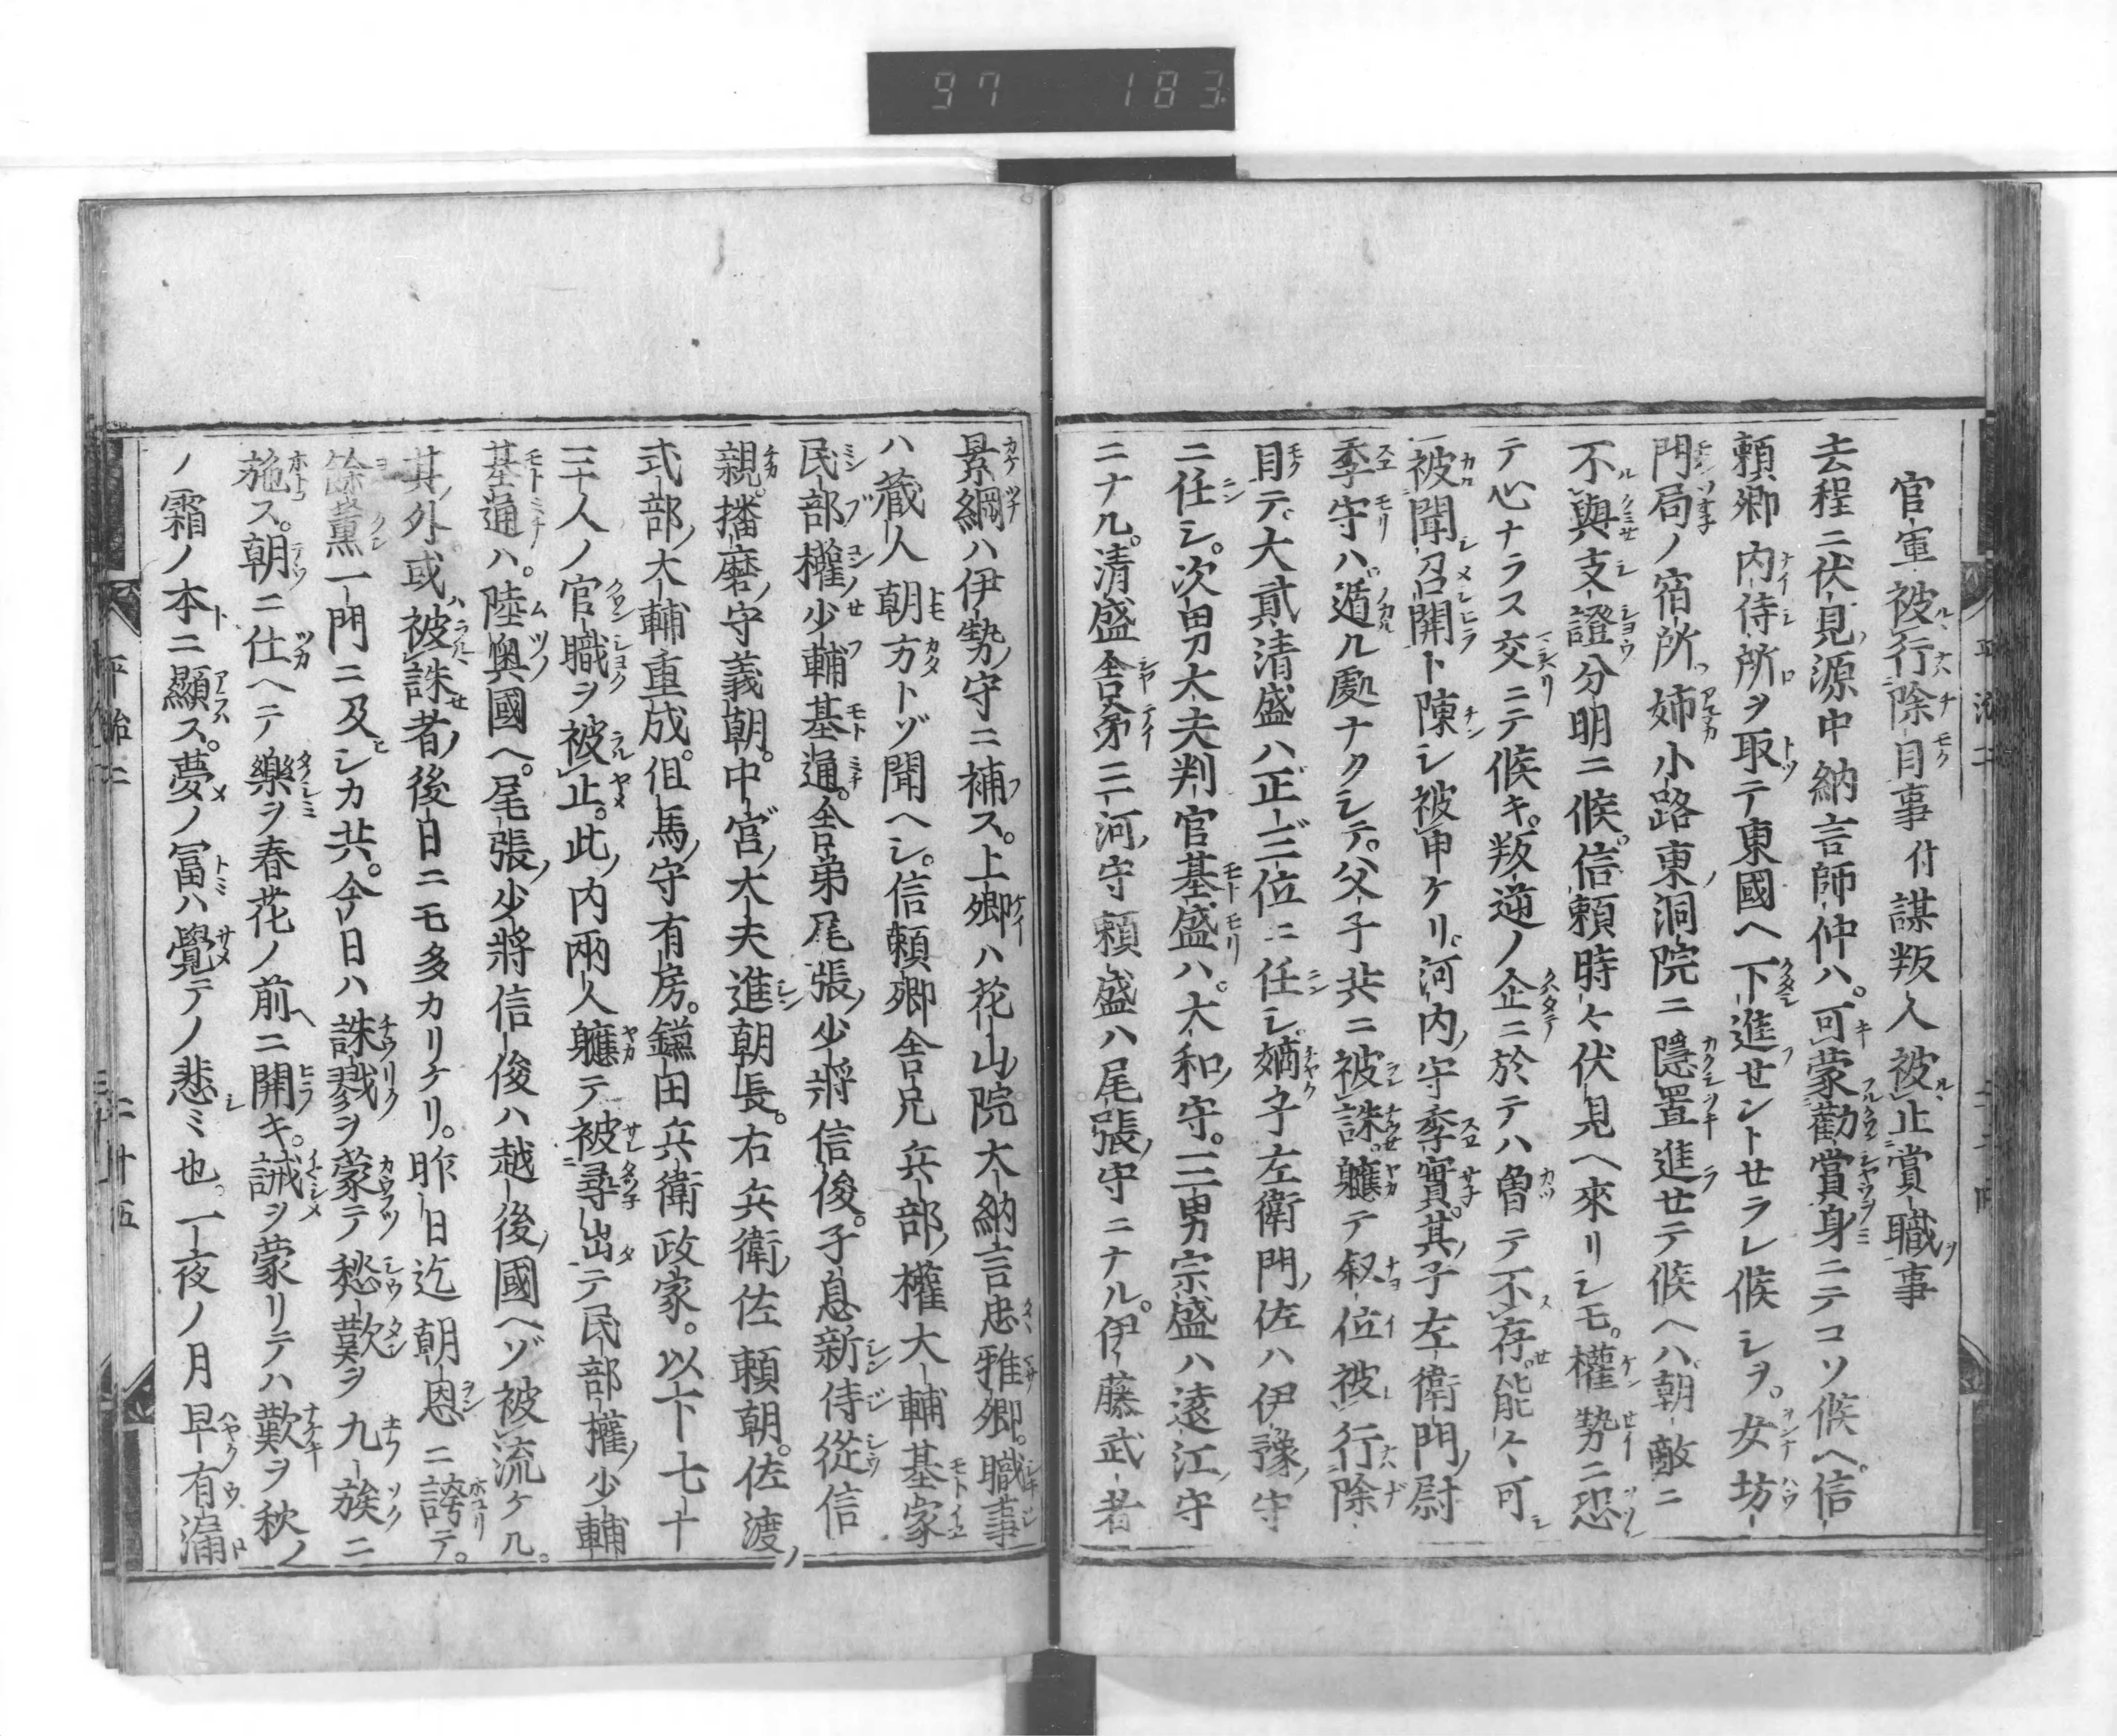 97 183
官軍被行除目事付謀叛人被止賞職事
去程ニ伏見源中納言師仲ハ。可蒙勸賞身ニテコソ候ヘ。信
頼卿内侍所ヲ取テ東國ヘ下進セントセラレ候シヲ。女坊
門局ノ宿所姉小路東洞院ニ隱置進セテ候ヘハ朝敵ニ
不與支證分明ニ候。信頼時々伏見ヘ來リシモ。權勢ニ恐
テ心ナラス交ニテ候キ。叛逆ノ企ニ於テハ曾テ不存能々可
被聞召開ト陳シ被申ケリ。河内守季實。其子左衛門尉
季守ハ。遁ル處ナクシテ。父子共ニ被誅。軈テ叙位被行除
目テ。大貳清盛ハ正三位ニ任シ。嫡子左衛門佐ハ伊豫守
ニ任シ。次男大夫判官基盛ハ。大和守。三男宗盛ハ遠江守
ニナル。清盛舎弟三河守頼盛ハ尾張守ニナル。伊藤武者
景綱ハ伊勢守ニ補ス。上卿ハ花山院大納言忠雅卿。職事
ハ藏人朝方トゾ聞ヘシ。信頼卿舎兄兵部權大輔基家
民部權少輔基通。舎弟尾張少將信俊。子息新侍從信
親。播磨守義朝。中宮大夫進朝長。右兵衛佐頼朝。佐渡
式部大輔重成。但馬守有房。鎌田兵衛政家。以下七十
三人ノ官職ヲ被止。此内兩人軈テ被尋出テ民部權少輔
基通ハ。陸奥國ヘ。尾張少將信俊ハ越後國ヘゾ被流ケル。
其外或被誅者後日ニモ多カリケリ。昨日迄朝恩ニ誇テ。
餘薫一門ニ及シカ共。今日ハ誅戮ヲ蒙テ愁歎ヲ九族ニ
施ス。朝ニ仕ヘテ樂ヲ春花ノ前ニ開キ。誡ヲ蒙リテハ歎ヲ秋ノ
ノ霜ノ本ニ顯ス。夢ノ冨ハ覺テノ悲ミ也。一夜ノ月早有漏
平治二 二十五